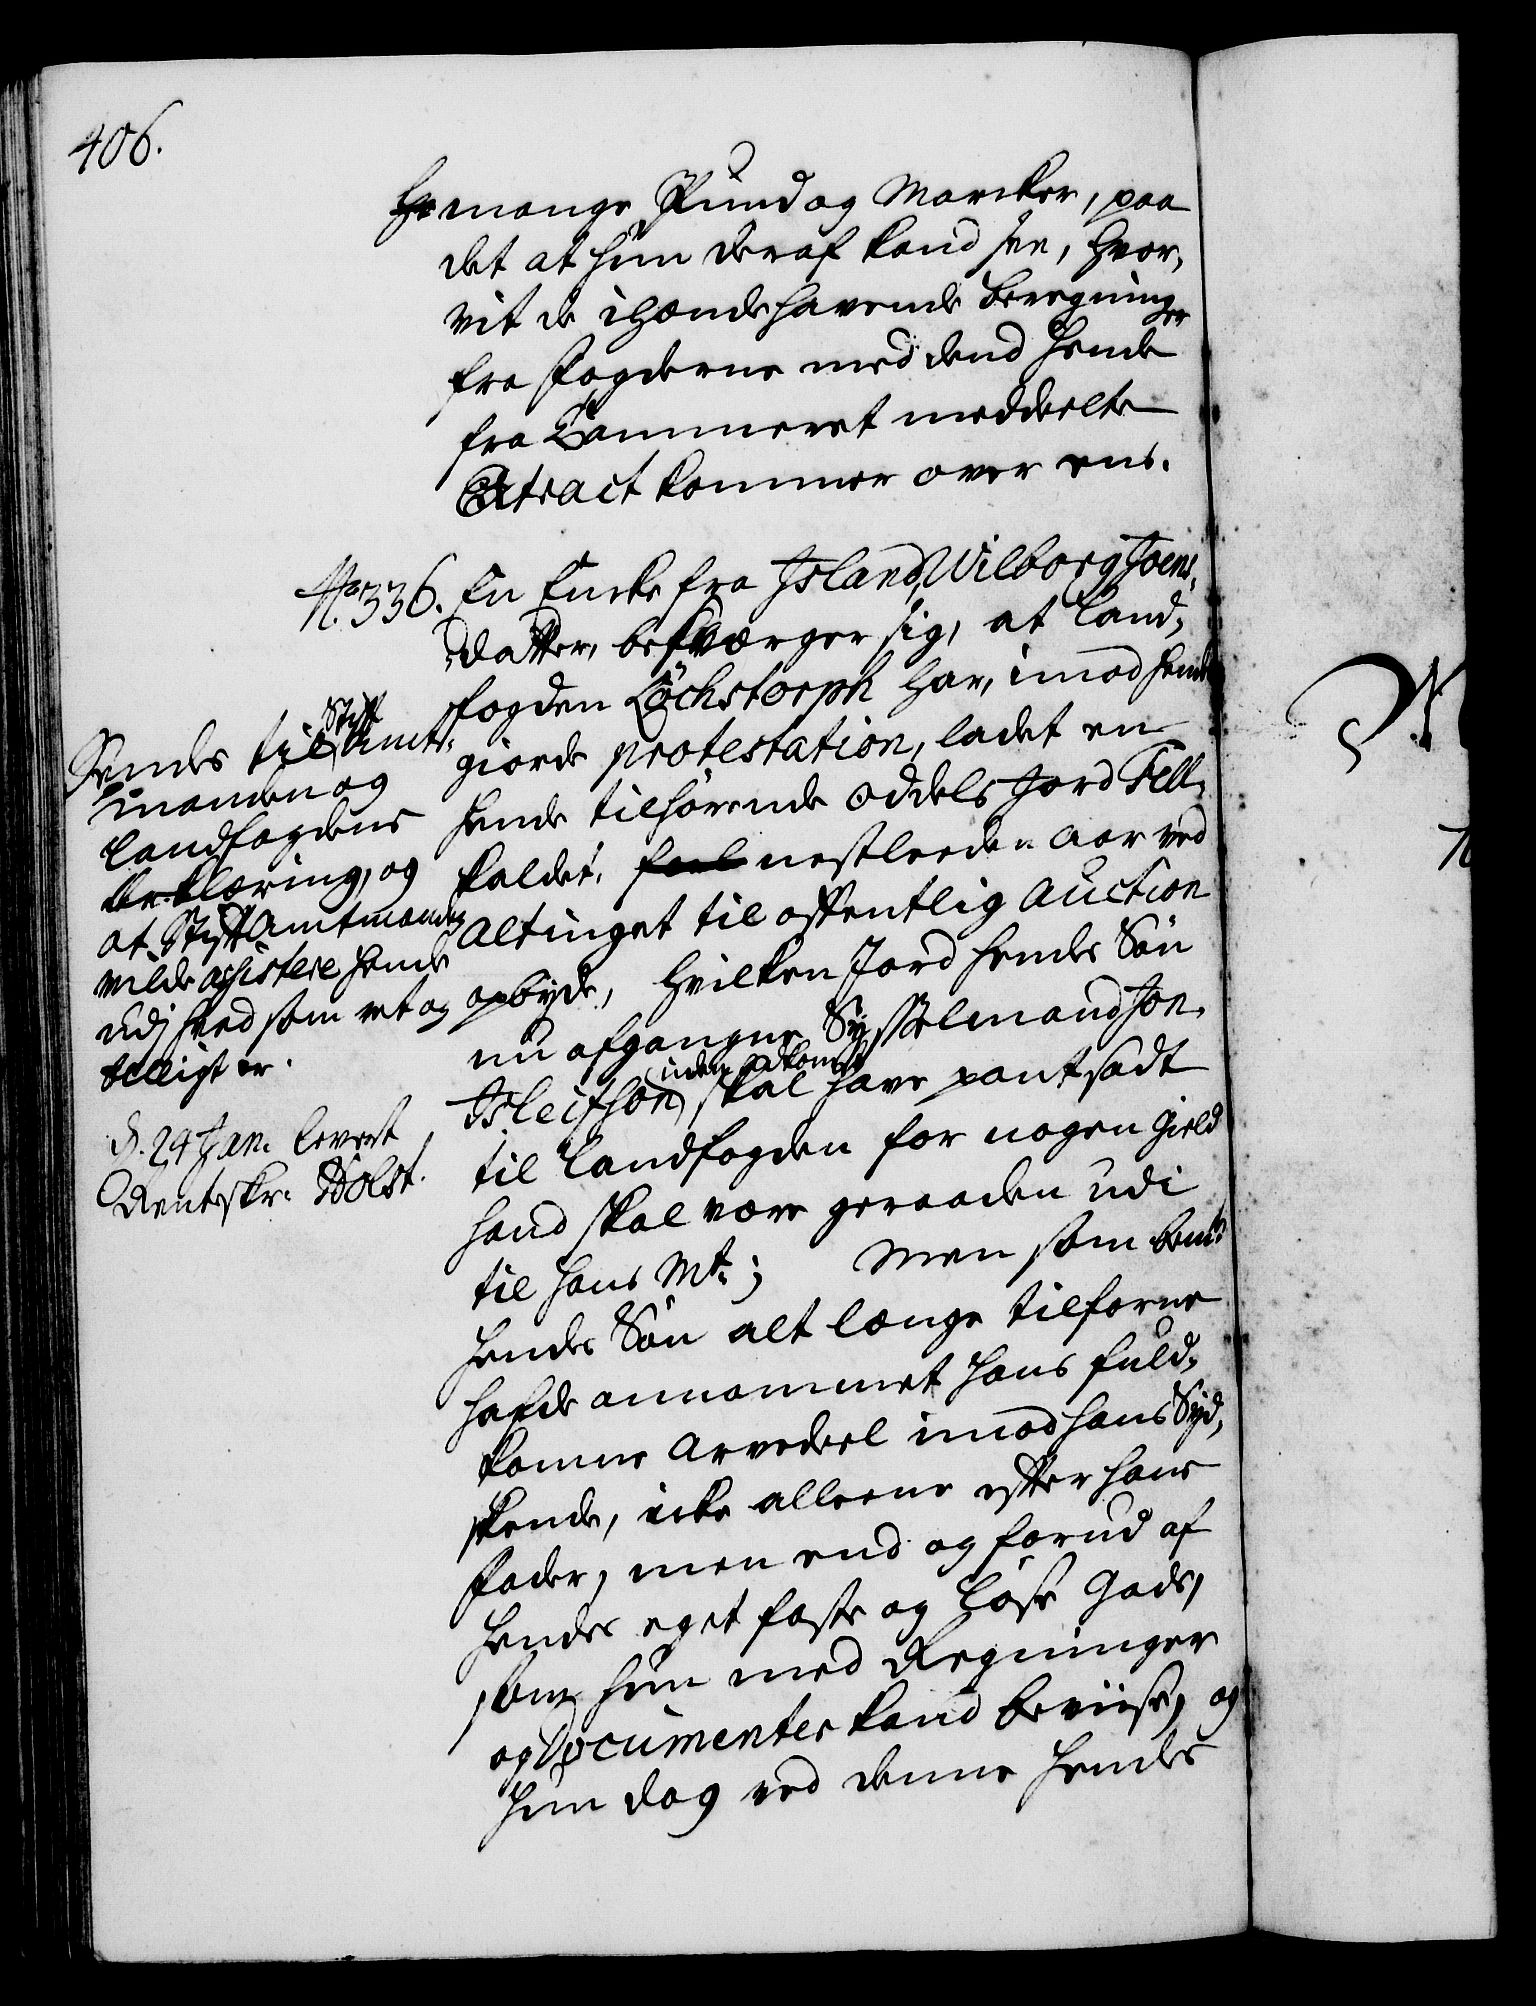 406.
mange Pund og Marcker, paa
det at hun deraf kand see, hvor-
vit de ihændehavende beregninger
fra fogderne med dend hende
fra Cammeret meddeelte
Extract kommer over eens.
No. 336. En Encke fra Island, Wilborg Joens-
datter, besværger sig, at Land-
fogden Löchstorph har, imod hende
giorde protestation, ladet en
hende tilhörende Oddels Jord Fell
kaldet, nestleeden Aar ved
Altinget til offentlig Auction
opbyde, hvilken Jord hendes Sön
nu afgangne Sysselmand Jon
Isleifsön uden adkomst skal have pantsadt
til Landfogden for nogen Gield
hand skal være geraaden udi
til hans Mt.; Men som bemte
hendes Sön alt længe tilforne
hafde annammet hans fuld-
komne Arvedeel imod hans Syd-
skende, icke alleene efter hans
fader, men end og forud af
hendes eget faste og Löse Gods,
som hun med Regninger
og Documenter kand beviise, og
hun dog ved denne hendes
Sendes til Stift Amt-
manden og
Landfogdens
Erklæring, og
at Stift Amtmanden
vilde assistere hende
udj hved som ret og
billigt er.
d. 24 Jan. leveret
Rentskr. Holst.